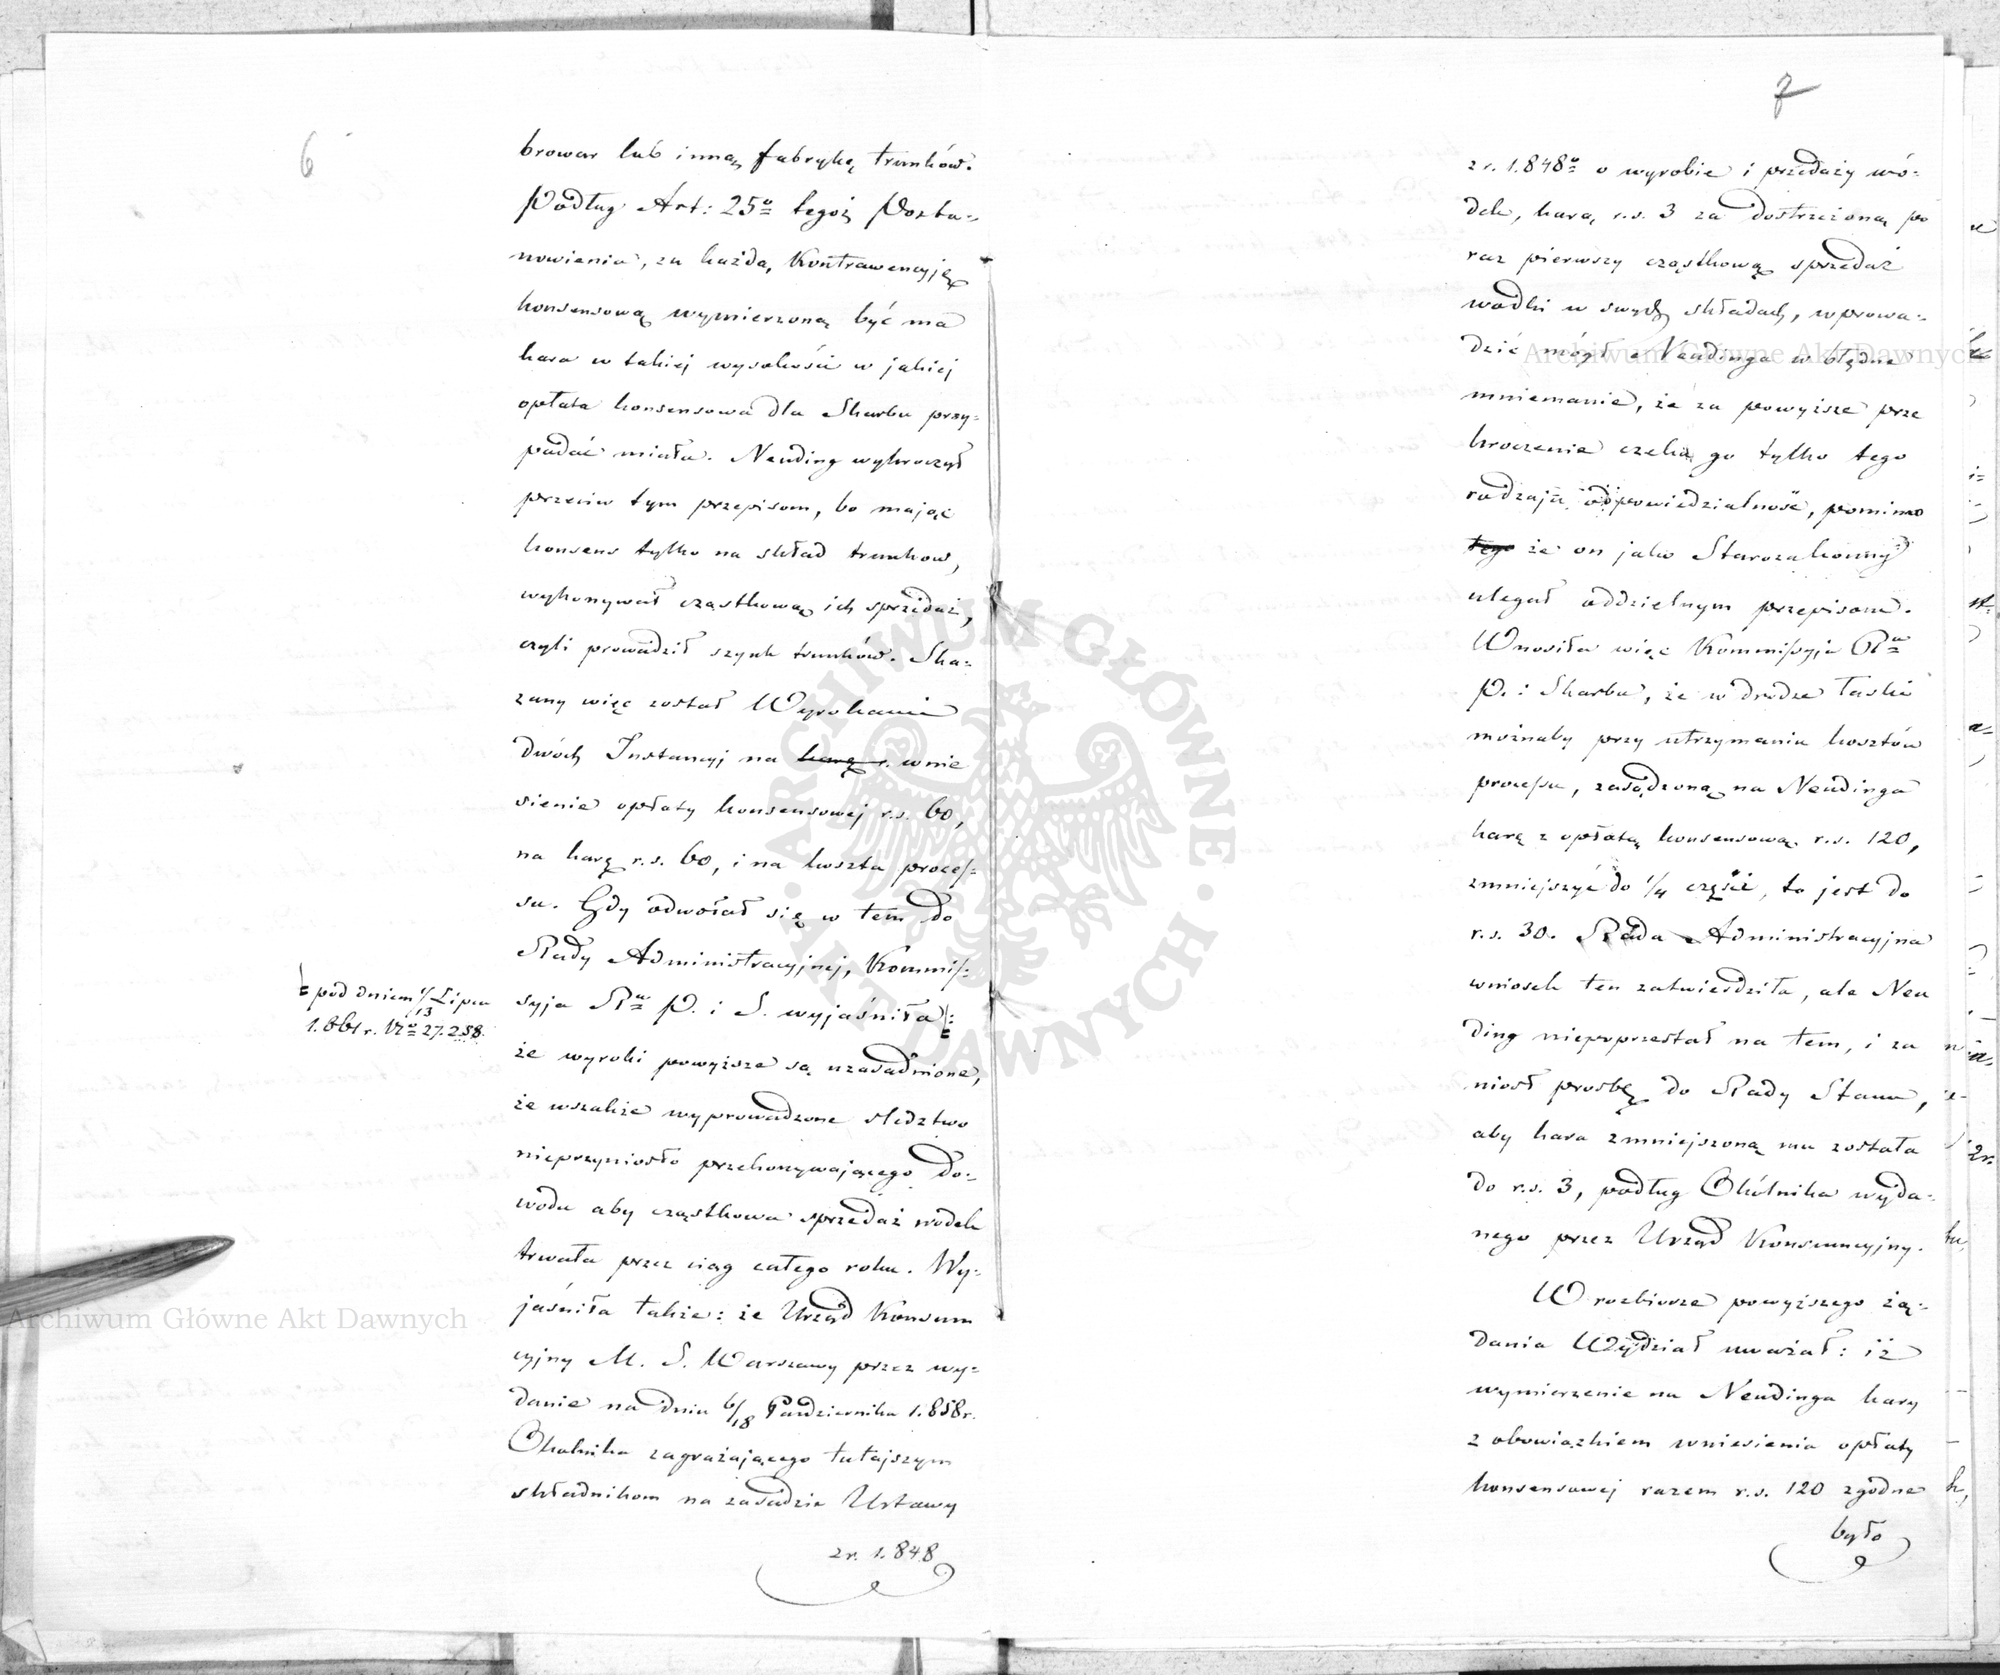 6
browar lub inną fabrykę trunków.
Podług Art: 25º tegoż Posta-
nowienia, za każdą Kontrawencyję
konsensową wymierzoną być ma
kara w takiej wysokości w jakiej
opłata konsensowa dla Skarbu przy-
padać miała. Neuding wykroczył
przeciw tym przepisom, bo mając
konsens tylko na skład trunkow,
wykonywał cząstkową ich sprzedaż,
czyli prowadził szynk trunków. Ska-
zany więc został Wyrokami
dwóch Instancyj na karę wnie
sienie opłaty konsensowej r.s. 60,
na karę r.s. 60, i na koszta proces-
su. Gdy odwołał się w tem do
Rady Administracyjnej, Kommis-
syja Rª P. i S. wyjaśniła
pod dniem 1/13 Lipca
1.861 r. Nº 27.258.
że wyroki powyższe są uzasadnione,
że wszakże wyprowadzone sledztwo
nieprzyniosło przekonywającego do-
wodu aby cząstkowa sprzedaż wodek
trwała przez ciąg całego roku. Wy-
jaśniła także: że Urząd Konsum
cyjny M. S. Warszawy przez wy-
danie na dniu 6/18 Października 1.858 r.
Okolnika zagrażającego tutejszym
składnikom na zasadzie Ustawy
z r. 1.848
7
z r. 1.848º o wyrobie i przedaży wó-
dek, karą r.s. 3 za dostrzeżoną po
raz pierwszy cząstkową sprzedaż
wodki w swych składach, wprowa-
dzić mógł Neudinga w błędne
mniemanie, że za powyższe prze
kroczenie czeka go tylko tego
rodzaju odpowiedzialność, pomimo
tego że on jako Starozakonny
ulegał oddzielnym przepisom.
Wnosiła więc Kommissyja Rª
P. i Skarbu, że w drodze łaski
możnaby przy utrzymaniu kosztów
processu, zasądzoną na Neudinga
karę z opłatą konsensową r.s. 120,
zmniejszyć do 1/4 części, to jest do
r.s. 30. Rada Administracyjna
wniosek ten zatwierdziła, ale Neu
ding niepoprzestał na tem, i za
niosł prosbę do Rady Stanu,
aby kara zmniejszoną mu została
do r.s. 3, podług Okólnika wyda-
nego przez Urząd Konsumcyjny.
W rozbiorze powyższego żą-
dania Wydział uważał: iż
wymierzenie na Neudinga kary
z obowiązkiem wniesienia opłaty
konsensowej razem r.s. 120 zgodne
było
Archiwum Główne Akt Dawnych
Archiwum Główne Akt Dawnych
ARCHIWUM GŁÓWNE · AKT DAWNYCH ·